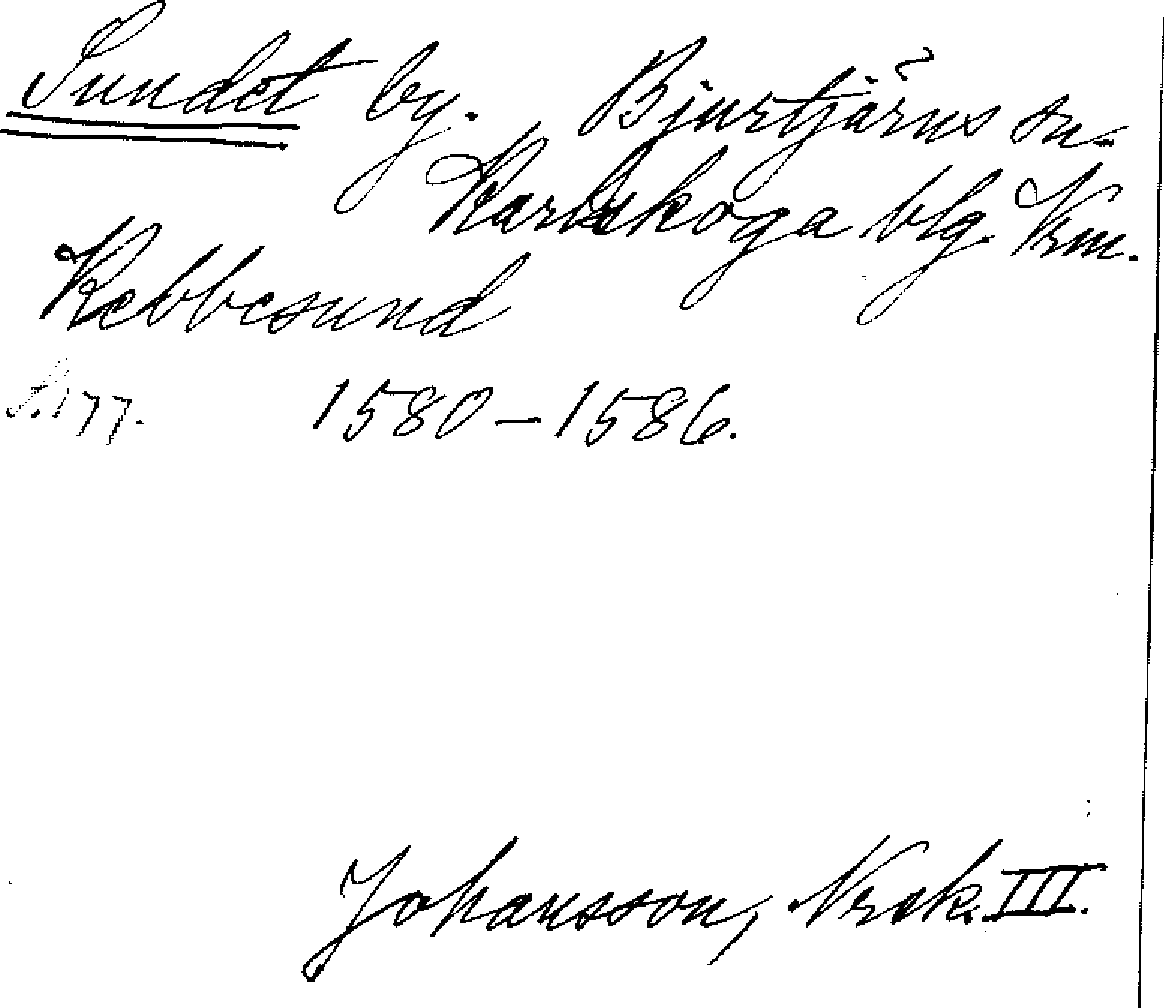 Sundet by. Bjurtjärns sn.
Karlskoga blg Vrm.
Kebbesund
S. 177. 1580-1586.
Johansson, Nrsk. III.